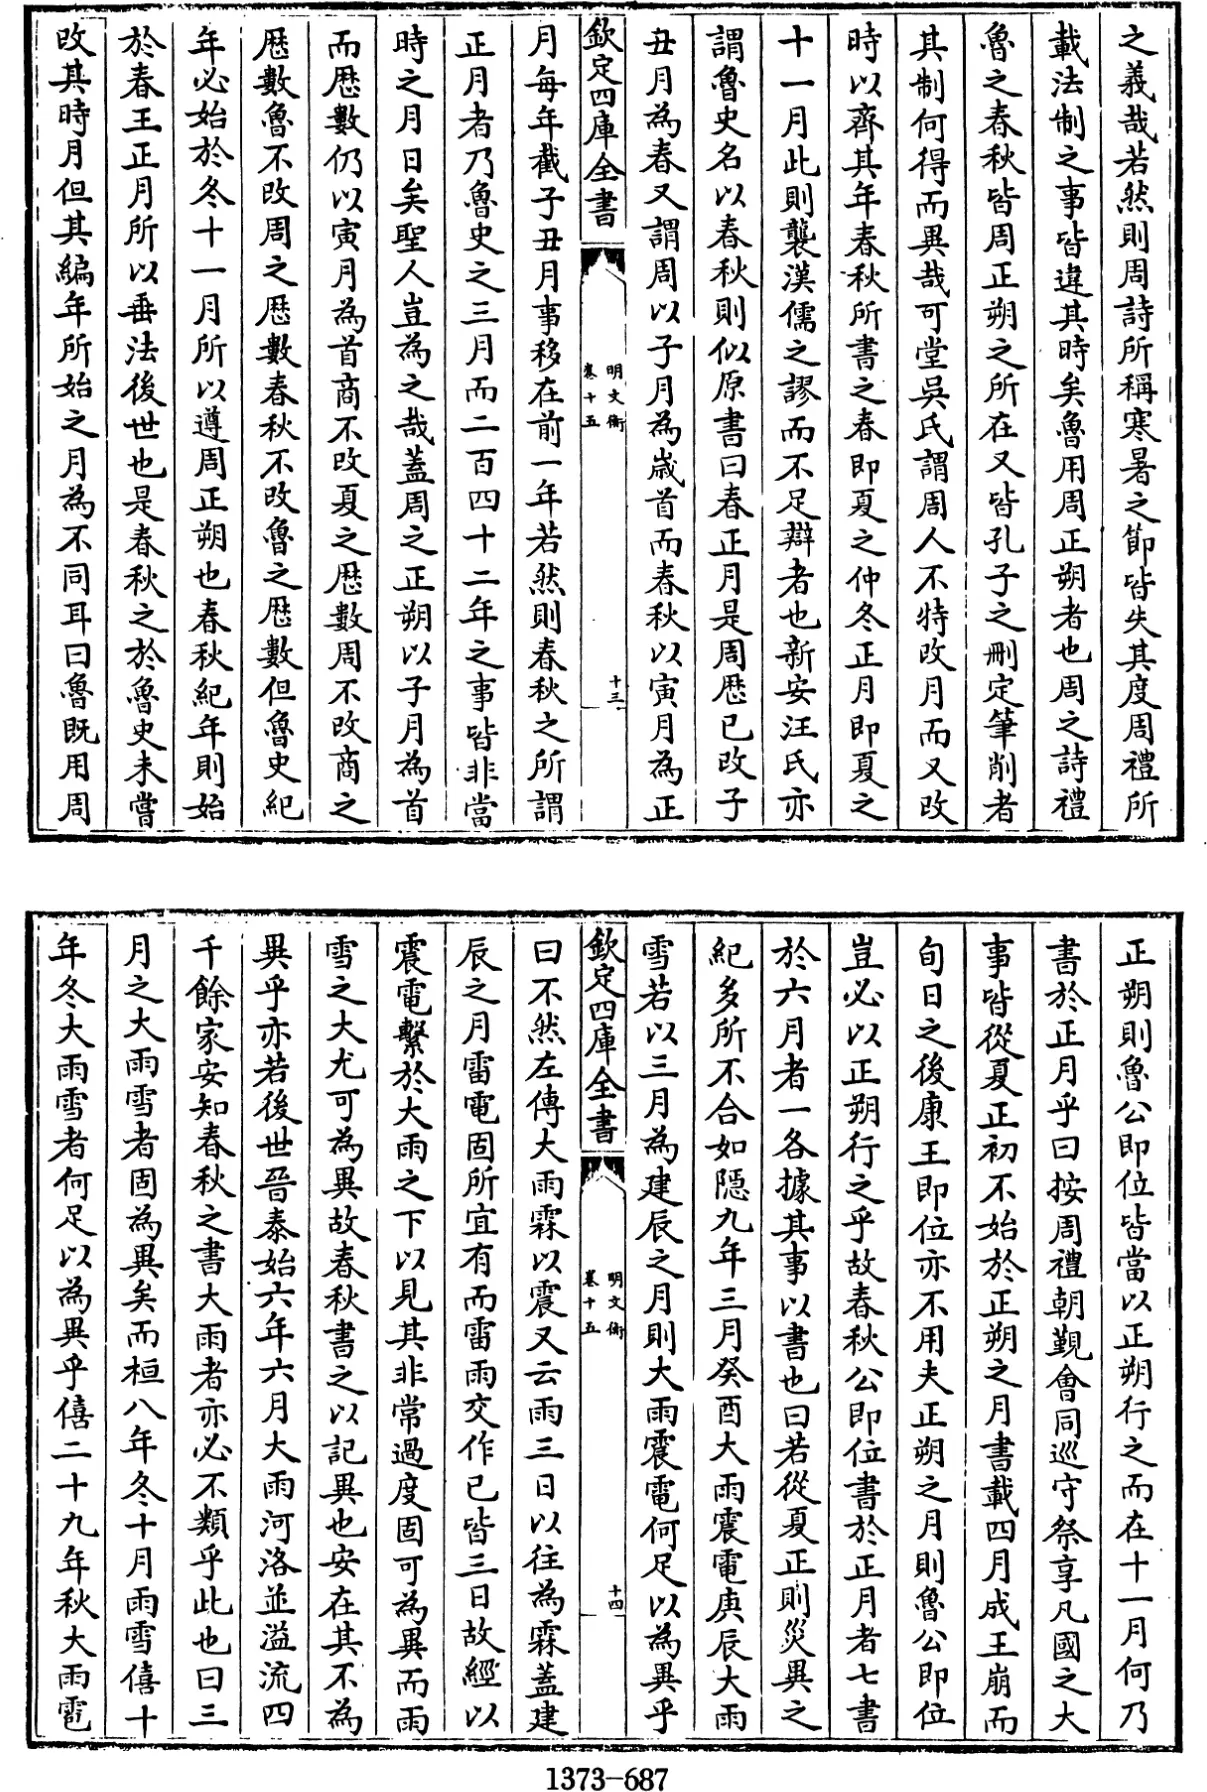 之義哉若然則周詩所稱寒暑之節皆失其度周禮所
載法制之事皆違其時矣魯用周正朔者也周之詩禮
魯之春秋皆周正朔之所在又皆孔子之刪定筆削者
其制何得而異哉可堂吳氏謂周人不特改月而又改
時以齊其年春秋所書之春即夏之仲冬正月即夏之
十一月此則襲漢儒之謬而不足辯者也新安汪氏亦
謂魯史名以春秋則似原書曰春正月是周歴已改子
丑月為春又謂周以子月為歲首而春秋以寅月為正
欽定四庫全書
明文衡
卷十五
十三
月每年截子丑月事移在前一年若然則春秋之所謂
正月者乃魯史之三月而二百四十二年之事皆非當
時之月日矣聖人豈為之哉蓋周之正朔以子月為首
而歴數仍以寅月為首商不改夏之歴數周不改商之
歴數魯不改周之歴數春秋不改魯之歴數但魯史紀
年必始於冬十一月所以遵周正朔也春秋紀年則始
於春王正月所以垂法後世也是春秋之於魯史未嘗
改其時月但其編年所始之月為不同耳曰魯既用周
正朔則魯公即位皆當以正朔行之而在十一月何乃
書於正月乎曰按周禮朝覲會同巡守祭享凡國之大
事皆從夏正初不始於正朔之月書載四月成王崩而
旬日之後康王即位亦不用夫正朔之月則魯公即位
豈必以正朔行之乎故春秋公即位書於正月者七書
於六月者一各據其事以書也曰若從夏正則災異之
紀多所不合如隱九年三月癸酉大雨震電庚辰大雨
雪若以三月為建辰之月則大雨震電何足以為異乎
欽定四庫全書
明文衡
卷十五
十四
曰不然左傳大雨霖以震又云雨三日以往為霖蓋建
辰之月雷電固所宜有而雷雨交作已皆三日故經以
震電繫於大雨之下以見其非常過度固可為異而雨
雪之大尤可為異故春秋書之以記異也安在其不為
異乎亦若後世晉泰始六年六月大雨河洛並溢流四
千餘家安知春秋之書大雨者亦必不類乎此也曰三
月之大雨雪者固為異矣而桓八年冬十月雨雪僖十
年冬大雨雪者何足以為異乎僖二十九年秋大雨雹
1373-687